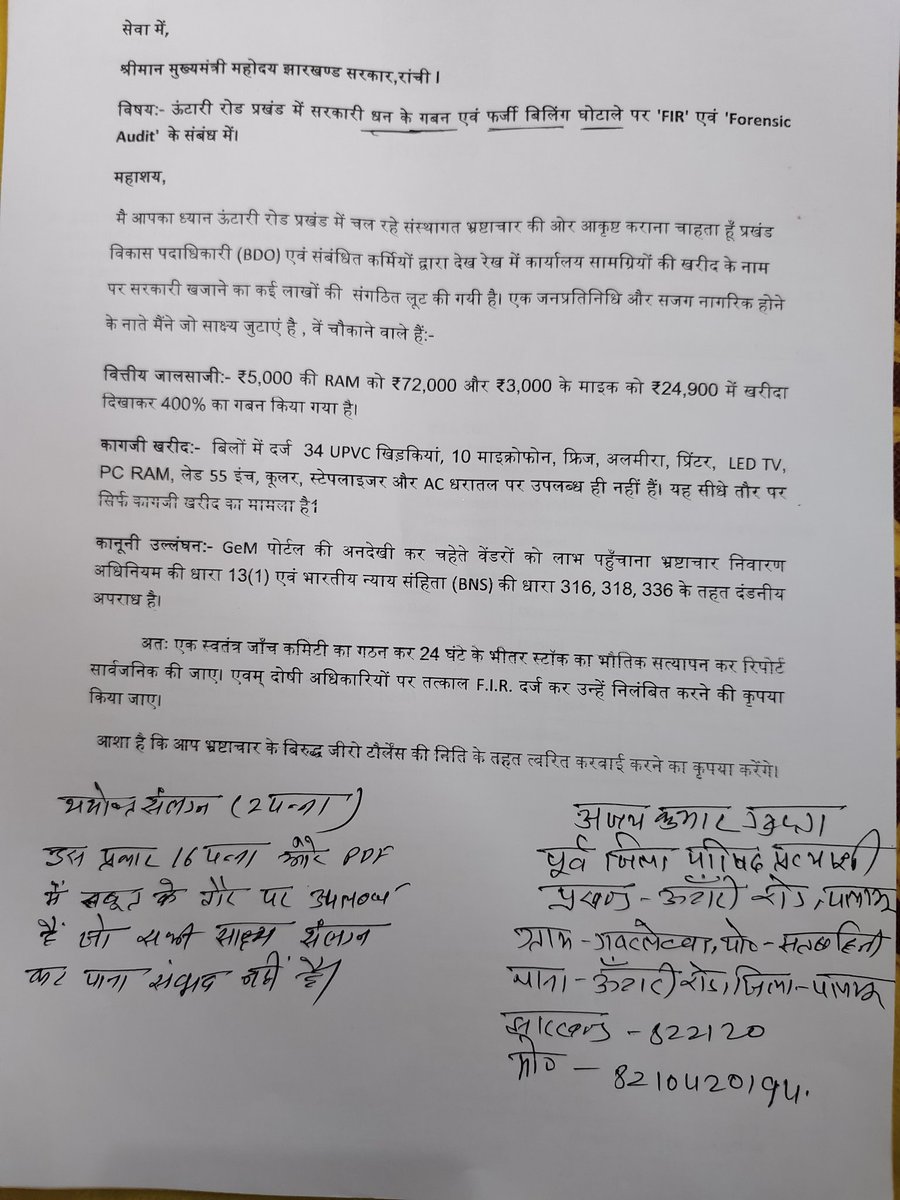 सेवा में,
श्रीमान मुख्यमंत्री महोदय झारखण्ड सरकार,रांची।
विषय:- ऊंटारी रोड प्रखंड में सरकारी धन के गबन एवं फर्जी बिलिंग घोटाले पर 'FIR' एवं 'Forensic
Audit' के संबंध में।
महाशय,
मै आपका ध्यान ऊंटारी रोड प्रखंड में चल रहे संस्थागत भ्रष्टाचार की ओर आकृष्ट कराना चाहता हूँ प्रखंड
विकास पदाधिकारी (BDO) एवं संबंधित कर्मियों द्वारा देख रेख में कार्यालय सामग्रियों की खरीद के नाम
पर सरकारी खजाने का कई लाखों की संगठित लूट की गयी है। एक जनप्रतिनिधि और सजग नागरिक होने
के नाते मैंने जो साक्ष्य जुटाएं है , वें चौकाने वाले हैं:-
वित्तीय जालसाजी:- ₹5,000 की RAM को ₹72,000 और ₹3,000 के माइक को ₹24,900 में खरीदा
दिखाकर 400% का गबन किया गया है।
कागजी खरीद:- बिलों में दर्ज 34 UPVC खिड़कियां, 10 माइक्रोफोन, फ्रिज, अलमीरा, प्रिंटर, LED TV,
PC RAM, लेड 55 इंच, कूलर, स्टेपलाइजर और AC धरातल पर उपलब्ध ही नहीं हैं। यह सीधे तौर पर
सिर्फ कागजी खरीद का मामला है1
कानूनी उल्लंघन:- GeM पोर्टल की अनदेखी कर चहेते वेंडरों को लाभ पहुँचाना भ्रष्टाचार निवारण
अधिनियम की धारा 13(1) एवं भारतीय न्याय संहिता (BNS) की धारा 316, 318, 336 के तहत दंडनीय
अपराध है।
अतः एक स्वतंत्र जाँच कमिटी का गठन कर 24 घंटे के भीतर स्टॉक का भौतिक सत्यापन कर रिपोर्ट
सार्वजनिक की जाए। एवम् दोषी अधिकारियों पर तत्काल F.I.R. दर्ज कर उन्हें निलंबित करने की कृपया
किया जाए।
आशा है कि आप भ्रष्टाचार के बिरुद्ध जीरो टौर्लेंस की निति के तहत त्वरित करवाई करने का कृपया करेंगे।
संलग्न (2 पन्ना)
इस प्रकार 16 पन्ना और PDF
में सबूत के तौर पर उपलब्ध
है जो सभी साक्ष्य संलग्न
कर पाना संभव नहीं है।
अजय कुमार गुप्ता
पूर्व जिला परिषद प्रत्याशी
प्रखण्ड - ऊँटारी रोड, पलामू
ग्राम - पो०-
थाना - ऊँटारी रोड, जिला - पलामू
झारखण्ड - 822120
मो० - 8210420194.